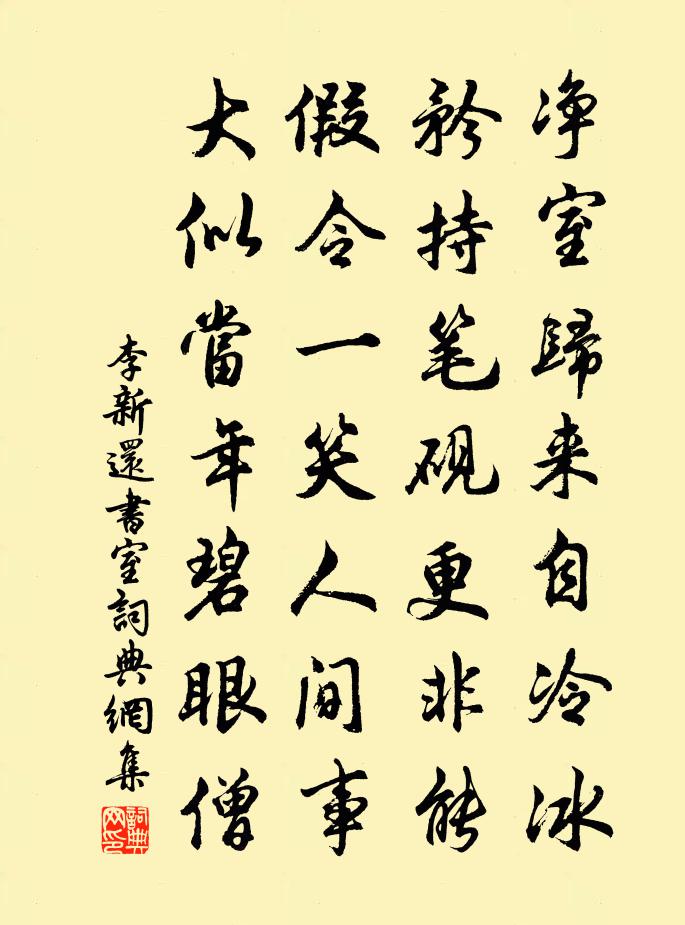 净室歸来自冷冰
矜持笔硯更非能
假令一笑人间事
大似當年碧眼僧
李新還書室詞典網集
詞典网印